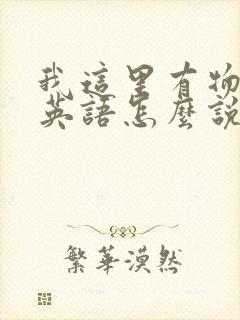 我這里有物
英語怎麼說
繁華漠然